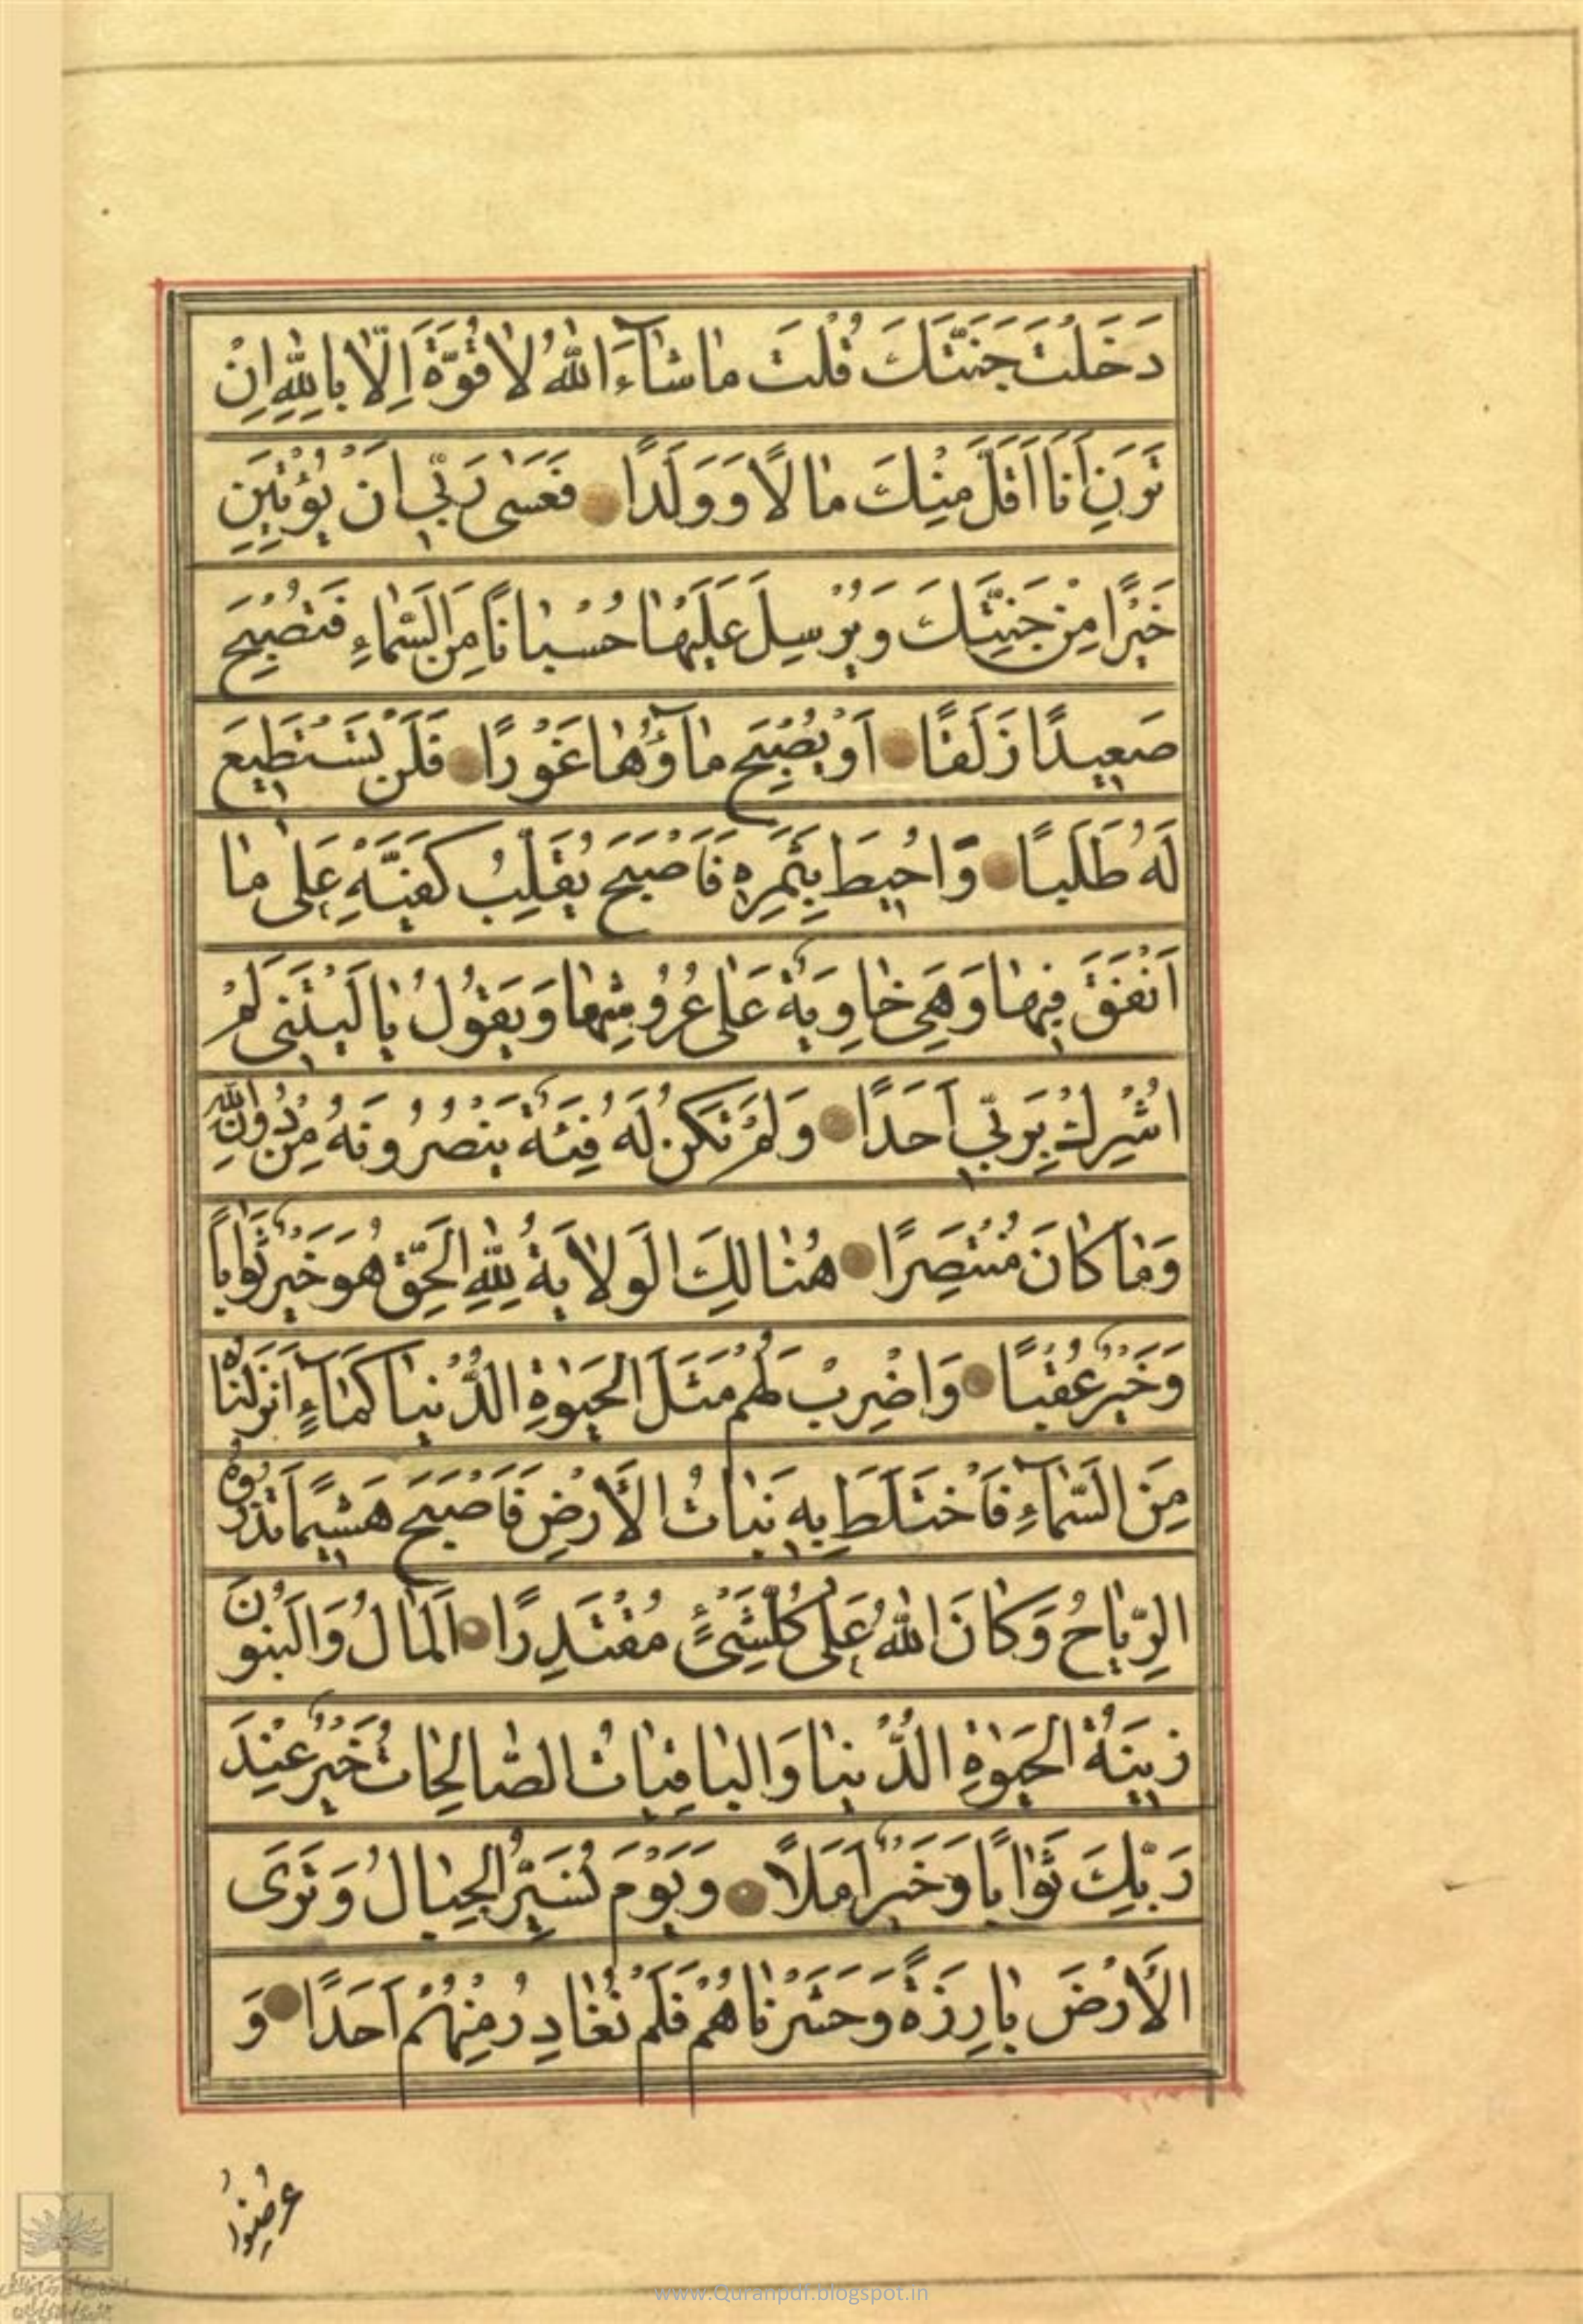 دَخَلْتَ جَنَّتَكَ قُلْتَ مٰا شٰآءَ اللّٰهُ لاٰ قُوَّةَ اِلّاٰ بِاللّٰهِ اِنْ
تَرَنِ اَنَا اَقَلَّ مِنْكَ مٰالاً وَ وَلَدًا فَعَسٰى رَبّي اَنْ يُؤْتِيَنِ
خَيْرًا مِنْ جَنَّتِكَ وَ يُرْسِلَ عَلَيْهٰا حُسْبٰانًا مِنَ السَّمٰاءِ فَتُصْبِحَ
صَعيدًا زَلَقًا اَوْ يُصْبِحَ مٰآؤُهٰا غَوْرًا فَلَنْ تَسْتَطيعَ
لَهُ طَلَبًا وَ اُحيطَ بِثَمَرِهِ فَاَصْبَحَ يُقَلِّبُ كَفَّيْهِ عَلٰى مٰا
اَنْفَقَ فيهٰا وَ هِيَ خٰاوِيَةٌ عَلٰى عُرُوشِهٰا وَ يَقُولُ يٰا لَيْتَني لَمْ
اُشْرِكْ بِرَبّي اَحَدًا وَ لَمْ تَكُنْ لَهُ فِئَةٌ يَنْصُرُونَهُ مِنْ دُونِ اللّٰهِ
وَ مٰا كٰانَ مُنْتَصِرًا هُنٰالِكَ الْوَلاٰيَةُ لِلّٰهِ الْحَقِّ هُوَ خَيْرٌ ثَوٰابًا
وَ خَيْرٌ عُقْبًا وَ اضْرِبْ لَهُمْ مَثَلَ الْحَيٰوةِ الدُّنْيٰا كَمٰآءٍ اَنْزَلْنٰاهُ
مِنَ السَّمٰآءِ فَاخْتَلَطَ بِهِ نَبٰاتُ الْأَرْضِ فَاَصْبَحَ هَشيمًا تَذْرُوهُ
الرِّيٰاحُ وَ كٰانَ اللّٰهُ عَلٰى كُلِّ شَيْءٍ مُقْتَدِرًا اَلْمٰالُ وَ الْبَنُونَ
زينَةُ الْحَيٰوةِ الدُّنْيٰا وَ الْبٰاقِيٰاتُ الصّٰالِحٰاتُ خَيْرٌ عِنْدَ
رَبِّكَ ثَوٰابًا وَ خَيْرٌ اَمَلاً وَ يَوْمَ نُسَيِّرُ الْجِبٰالَ وَ تَرَى
الْأَرْضَ بٰارِزَةً وَ حَشَرْنٰاهُمْ فَلَمْ نُغٰادِرْ مِنْهُمْ اَحَدًا وَ
عُرِضُوا
www.Quranpdf.blogspot.in